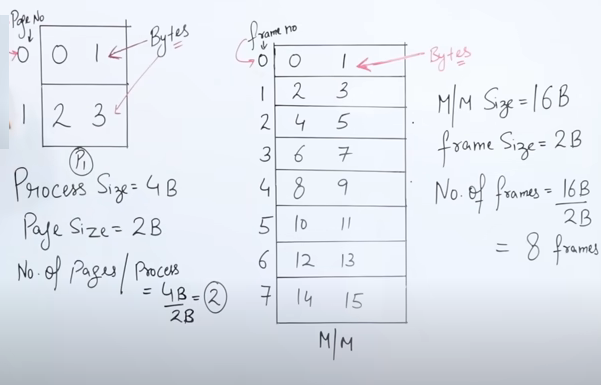 Page No
0 0 1
Bytes
1 2 3
P1
Process Size = 4B
Page Size = 2B
No. of Pages/Process
= 4B
2B
= 2
frame no
0 0 1
Bytes
1 2 3
2 4 5
3 6 7
4 8 9
5 10 11
6 12 13
7 14 15
M/M
M/M Size = 16B
frame Size = 2B
No. of frames = 16B
2B
= 8 frames